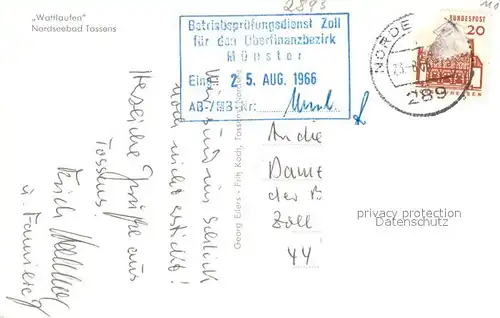 „Wattlaufen"
Nordseebad Tossens
2893
Betriebsprüfungsdienst Zoll
für den Oberfinanzbezirk
Münster
Eing. 25. AUG. 1966
AB-/MB-Nr.
NORDE
289
BUNDESPOST
20
Herzliche Grüße aus
Tossens!
Erich
u. Familie
Wir sind im Schlick
noch nicht erstickt!
Georg Eilers - Fritz Koch, Tossens
An die
Dame
der B
Zoll
44
privacy protection
Datenschutz